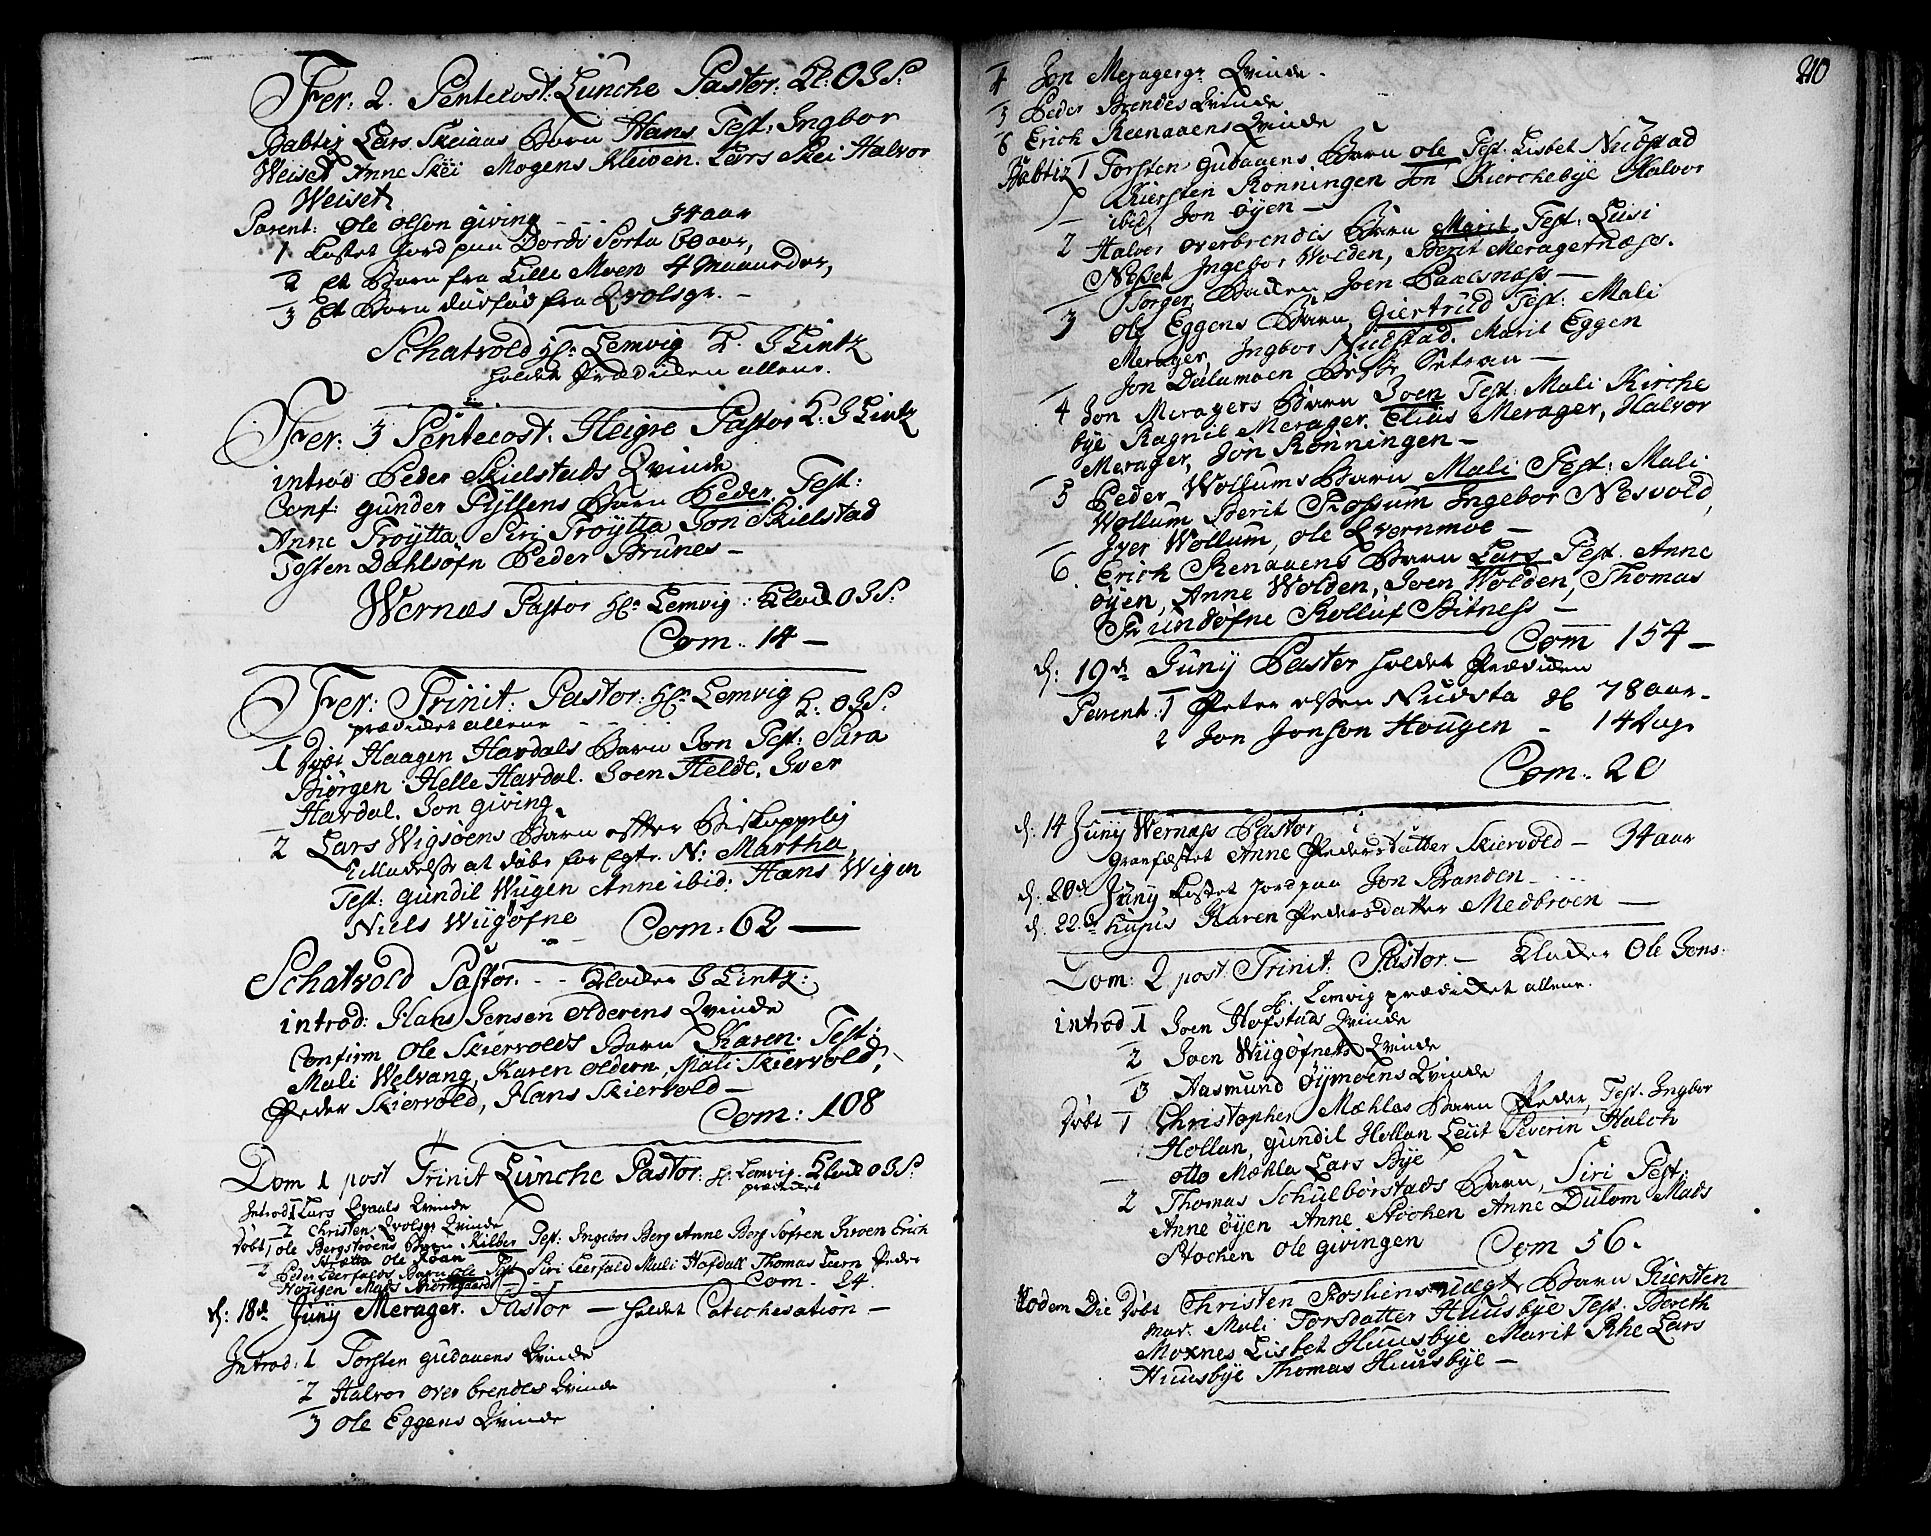 Fer: 2. Pentecost. Lünche Pastor. Kl: O J S:
Babtiz Lars Skeiaas Barn Hans Test: Ingbor
Weiset Anne Skei Mogens Kleiven. Lars Skei Halvor
Weiset
Parent: Ole Olson giving 34 aar
1 Kastet Jord paa Dordi Sorta 60 aar,
2 Et Barn fra Lille Moen 4 Maaneder,
3 Et Barn dødfød fra Qvolsgr. -
Schatvold Hr Lemvig K. J Lintz
holdet Prædiken allene.
Fer: 3 Pentecost. Heigre Pastor K: J Lintz
introd Peder Skielstads Qvinde
Conf: gunder Pyllens Barn Peder. Test:
Anne Troÿtta Siri Troÿtta Jon Skielstad
Tosten Dahlsøfn Peder Brunes -
Wernæs Pastor Hr Lemvig: Klock O J S:
Com. 14 -
Fer: Trinit: Pastor: Hr Lemvig K: O J S:
prædiket allene
1 Døbt Haagen Hardals Barn Jon Test: Sara
Biørgen Helle Hardal. Joen Helde, Iver
Hardal. Jon giving
2 Lars Wigsøens Barn efter Biskoppelig
Tilladelse at døbe for Egte. N: Martha
Test: gundil Wiigen Anne ibid: Hans Wigen
Niels Wiigøfne Com: 62 -
Schatvold Pastor. - - Klocker J Lintz:
introd: Hans Jensen Olderens Qvinde
Confirm Ole Skiervolds Barn Karen. Test:
Mali Welvang, Karen Oldern, Mali Skiervold,
Peder Skiervold, Hans Skiervold -
Com: 108
Dom 1 post Trinit Lünche Pastor. Hr Lemvig. Klock O J S:
prædiket
Introd: 1 Lars Qvaals Qvinde
2 Christen Qvolsgr Qvinde
Døbt 1 Ole Bergstrøens Barn Kilber Test: Ingebor Berg Anne Berg Søfren Kroen Erich
Ole Roan
2 Peder Leerfalds Barn Ole Test Siri Leerfald Mali Hofdall Thomas Leern Peder
Hougen Mats Com. 24.
d: 18de Junÿ Merager. Pastor - holdet Catechesation -
Introd: 1 Torsten gudaaens Qvinde
2 Halvor over brendes Qvinde
3 Ole Eggens Qvinde
210
4 Jon Meragergr Qvinde.
5 Peder Brendes Qvinde
6 Erich Reenaaens Qvinde
Babtiz 1 Torsten Gudaaens Barn Ole Test. Lisbet Nüstad
Kiersten Rønningen Jon Kirchebÿe Halvor
ibid, Jon øÿen -
2 Halvor overbrendes Barn Marit Test: Lisi
Nesset Ingebor Wolden, Berit Meragernæss.
Torger Joen Paalsnæss -
3 Ole Eggens Barn, Giertrüd Test: Mali
Merager, Ingbor Nüstad. Marit Eggen
Jon Dalamoen Setran -
4 Jon Meragers Barn Joen Test: Mali Kirche
bÿe Ragnil Merager. Elias Merager, Halvor
Merager, Jon Rønningen -
5 Peder Wollums Barn Mali Test: Mali
Wollum Berit Rossum Ingebor Nesvold,
Iver Wollum, Ole Qvernmoe -
6. Erich Renaaens Barn Lars Test. Anne
øÿen, Anne Wolden, Joen Wolden, Thomas
Sündøfne Rolluf Bitness -
Com 154 -
d: 19de Junÿ Pastor holdet Prædiken
Parent. 1 Peter Nudsta 78 aar -
2 Jon Jonson Hougen - 14 dage
Com: 20
d: 14 Junÿ Wernæss Pastor
Grafæstet Anne Pedersdatter Skiervold - 34 aar
d: 20de Junÿ Kastet Jord paa Jon Branden - ...
d. 22de hujus Karen Pedersdatter Medbroen -
Dom: 2 post Trinit: Pastor. - Klocker Ole Jens:
Hr. Lemvig prædiket allene.
introd 1 Joen Hofstads Qvinde
2 Joen Wiigøfnets Qvinde
3 Aasmund Øÿmoens Qvinde
Døbt 1 Christopher Mæhlas Barn Peder, Test. Ingbor
Hollan, gundil Hollan Leüt Severin Halch
otto Mæhla Lars Bÿe
2 Thomas Schulbørstads Barn, Siri Test:
Anne øÿen Anne Stochen Anne Dülom Mads
Stochen Ole givingen Com 56.
Eodem Die Døbt Christen Barn Kiersten
Mali Torsdatter Huusbÿe Test. Bereth
Moxnes Lisbet Huusbÿe Marit Rhe Lars
Huusbÿe Thomas Huusbÿe -